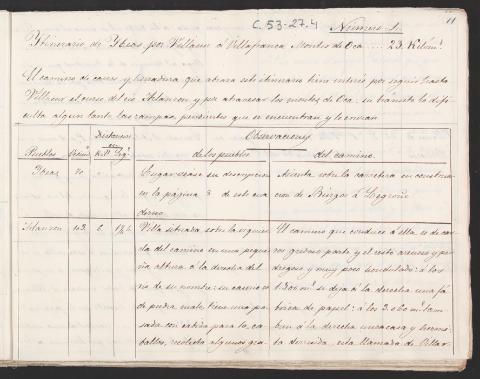 11
C. 53-27-4
Número 1.
Ytinerario de Ybeas, por Villasur á Villafranca Montes de Oca .... 23. Kilómº
El camino de carro y herradura que abraza este itinerario tiene interés por seguir hasta
Villasur el curso del rio Arlanzon y por atravesar los montes de Oca; su tránsito lo difi-
culta algun tanto las rampas pendientes que se encuentran y le cruzan
Pueblos
Distancias
en
Kilº Legº
Observaciones
de los pueblos
del camino.
Ybeas 70 Lugar véase su descripcion
en la página 3 de este cua
derno.
Asienta sobre la carretera en construc
cion de Búrgos á Logroño
Arlanzon 103 Villa situada sobre la izquier
da del camino en una peque
ña altura á la derecha del
rio de su nombre: su caserio es
de piedra malo, tiene una po
sada con cabida para 10 ca-
ballos, recolecta algunos gra-
El camino que conduce á ella es de car
ros gredoso parte y el resto arenoso y pe
dregoso y muy poco ondulado: á los
1500 mº se deja á la derecha una fá
brica de papel: á los 3.060 mº tam
bien á la derecha una casa y hermi-
ta derruida, esta llamada de Villar